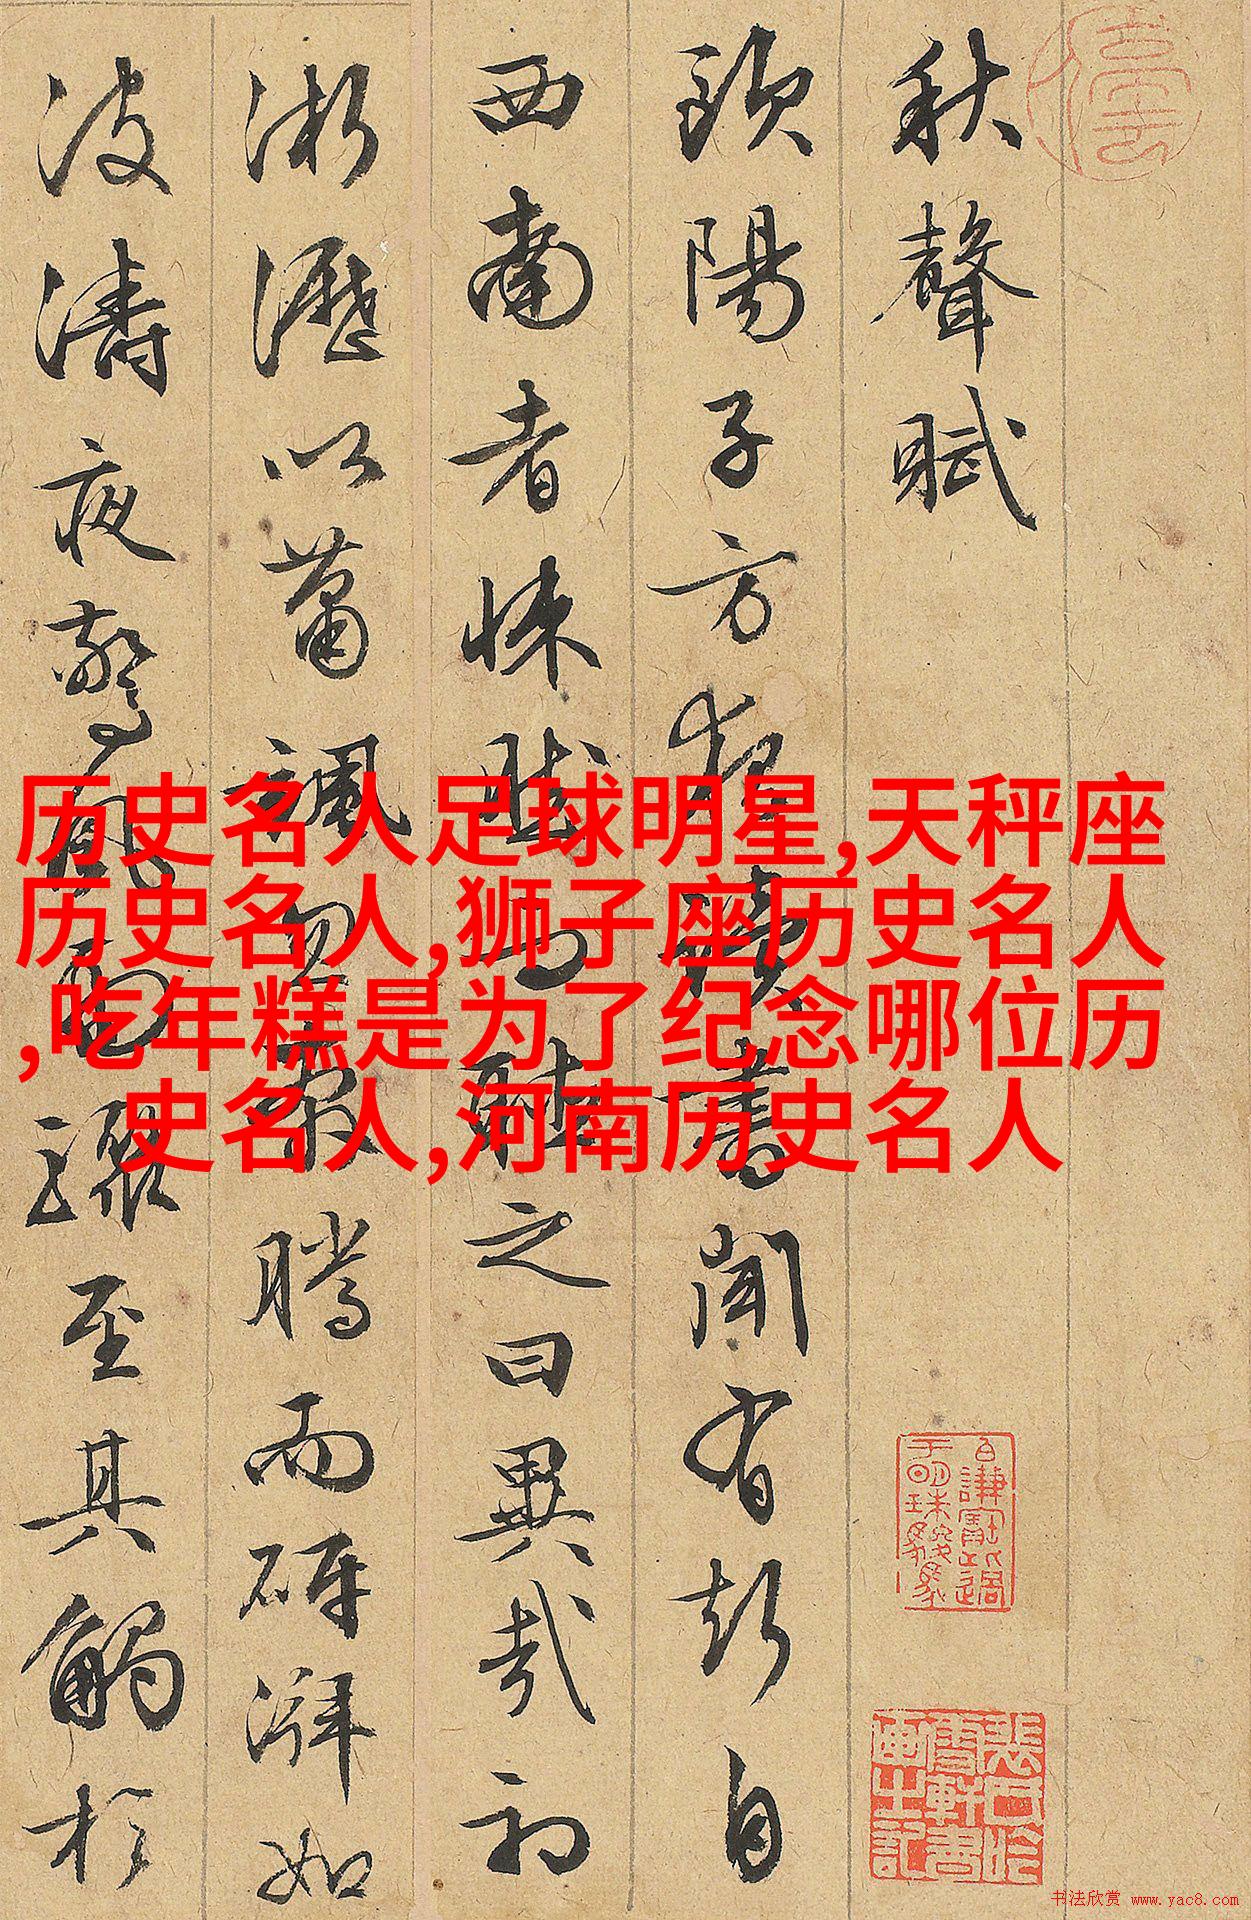 秋聲賦
歐陽子方夜讀書聞有聲自
西南者悚然而聽之曰異哉初
淅瀝以蕭颯忽奔騰而砰湃如
波濤夜驚風雨驟至其觸於
历史名人足球明星,天秤座
历史名人,狮子座历史名人
,吃年糕是为了纪念哪位历
史名人,河南历史名人
书法欣赏 www.yac8.com